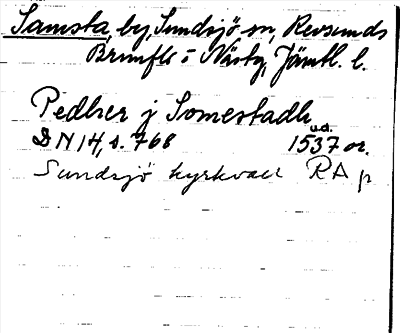 Samsta, by, Sundsjö sn, Revsunds
Brunflo o Näsby, Jämtl. l.
Pedher j Somestadh
u.d.
DN 14, s. 768 1537 or.
Sundsjö kyrkvall RA p